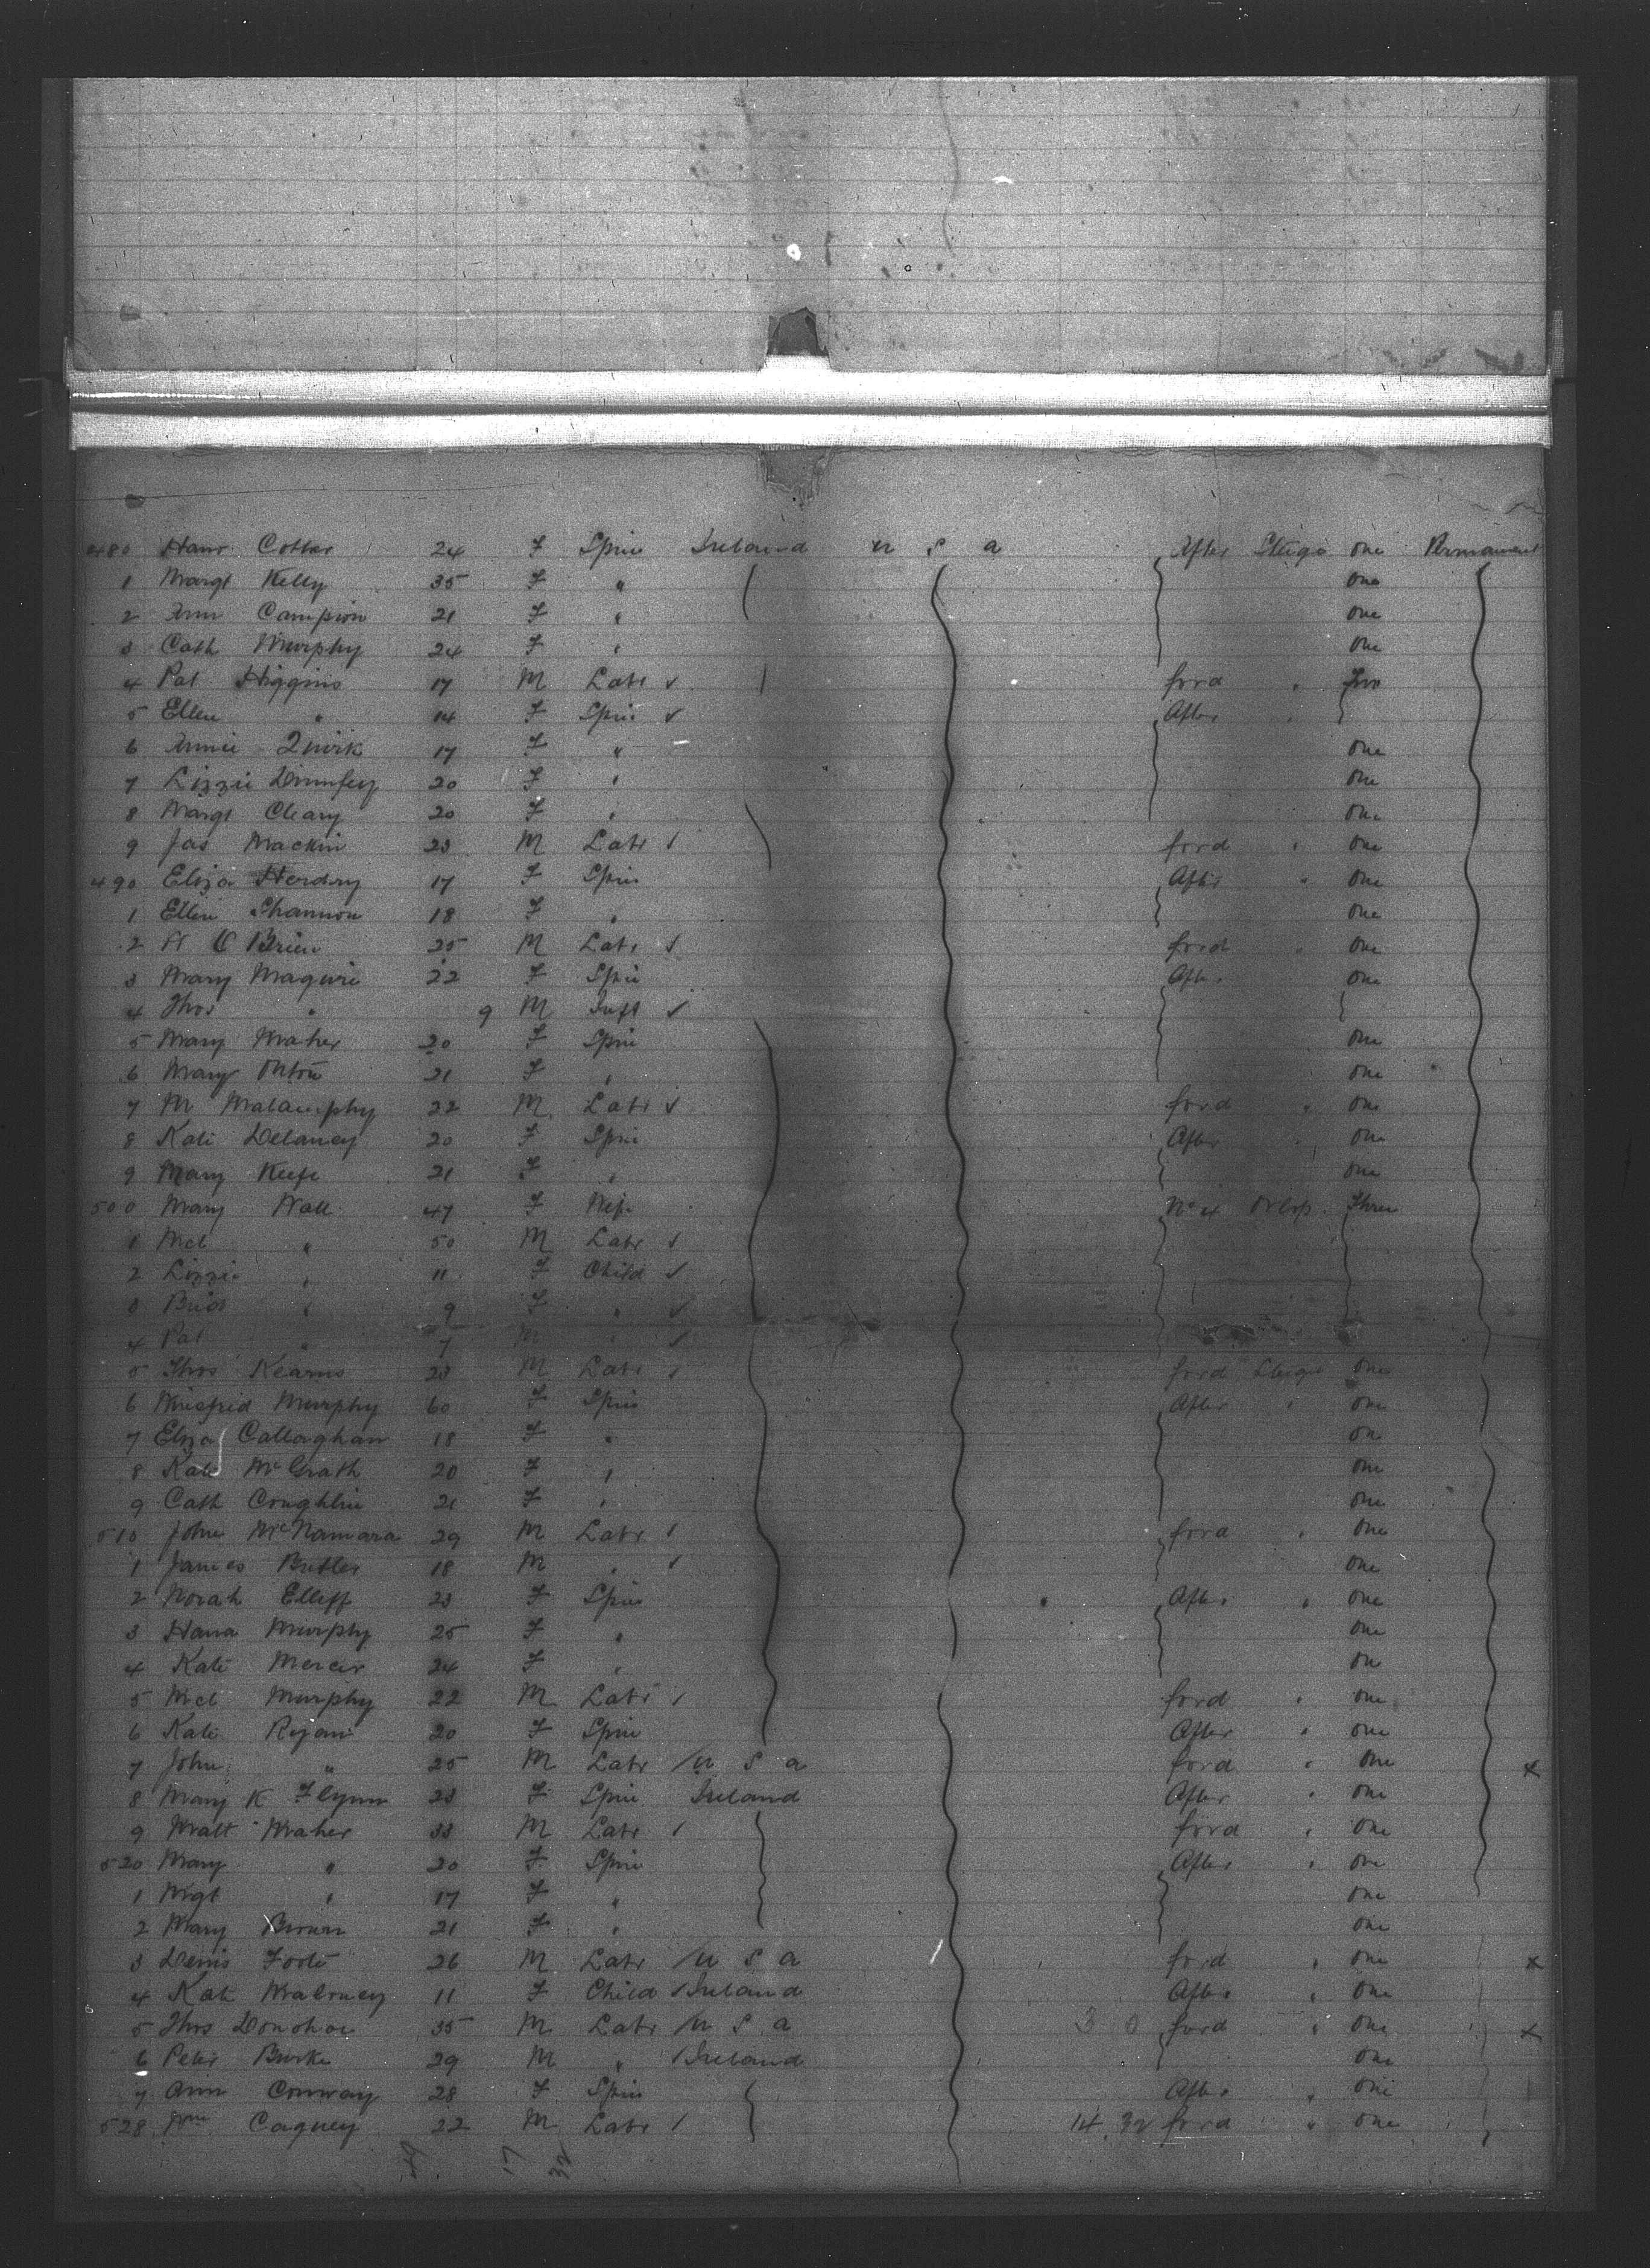 480 Hanr Cotter 24 F Spin Ireland U S A After Sterge one Permanent
1 Margt Kelly 35 F " one
2 Ann Campion 21 F " one
3 Cath Murphy 24 F " one
4 Pat Higgins 17 M Labr ✓ ford " Two
5 Ellen " 14 F Spin ✓ After "
6 Annie Quirk 17 F " one
7 Lizzie 20 F " one
8 Margt Cleary 20 F " one
9 Jas Mackin 23 M Labr ✓ ford " one
490 Eliza 17 F Spin After " one
1 Ellen Shannon 18 F " one
2 O Brien 25 M Labr ✓ ford " one
3 Mary Maguire 22 F Spin After one
4 Thos " 9 M Inft ✓
5 Mary Maher 20 F Spin one
6 Mary 21 F " one
7 M Malamphy 22 M Labr ✓ ford " one
8 Kate Delaney 20 F Spin After " one
9 Mary Keefe 21 F " one
500 Mary Wall 47 F Wife No 4 Three
1 Mcl " 50 M Labr ✓
2 Lizzie " 11 F Child ✓
3 Brid " 9 F " ✓
4 Pat " 7 M " ✓
5 Thos Kearns 23 M Labr ✓ ford Sterge one
6 Winefrid Murphy 60 F Spin After " one
7 Eliza Callaghan 18 F " one
8 Kate McGrath 20 F " one
9 Cath Coughlin 21 F " one
510 John McNamara 29 M Labr ✓ ford " one
1 James Butler 18 M " ✓ one
2 Norah Elliff 23 F Spin After " one
3 Hana Murphy 25 F " one
4 Kate Mercer 24 F " one
5 Mcl Murphy 22 M Labr ✓ ford " one
6 Kate Ryan 20 F Spin After " one
7 John " 25 M Labr / U S A ford " one x
8 Mary K Flynn 23 F Spin Ireland After " one
9 Matt Maher 33 M Labr ✓ ford " one
520 Mary " 20 F Spin After " one
1 Mgt " 17 F " one
2 Mary Brown 21 F " one
3 Denis Foote 26 M Labr / U S A ford " one x
4 Kate Maloney 11 F Child / Ireland After " one
5 Thos Donohoe 35 M Labr / U S A 30 ford " one x
6 Peter Burke 29 M " / Ireland one
7 Ann Conway 28 F Spin After " one
528 Wm Cagney 22 M Labr ✓ 14.32 ford " one
17 32